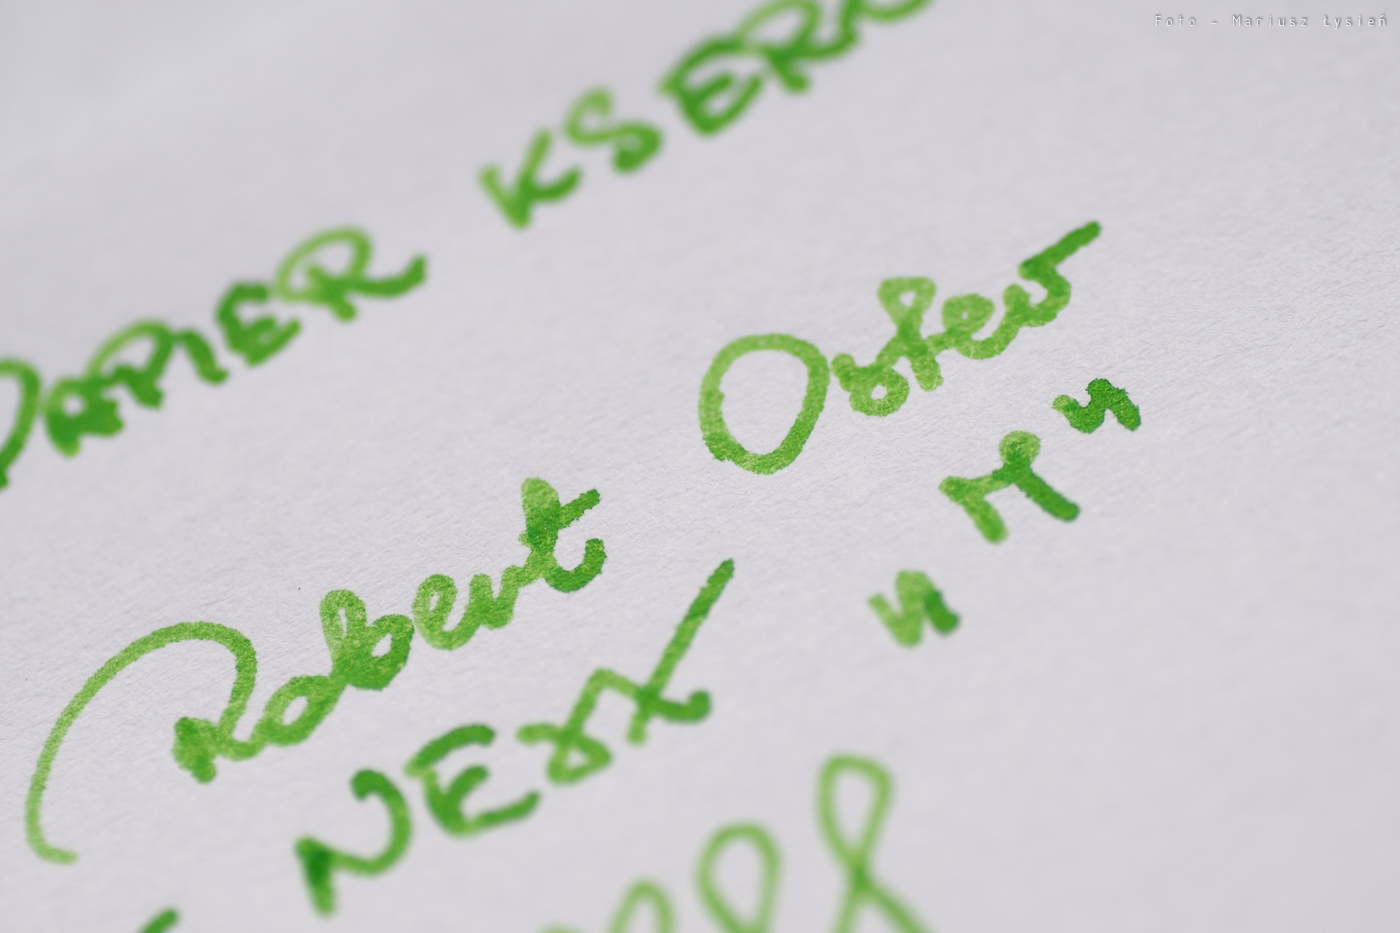 Foto - Mariusz Łysień
PAPIER KSERO
Robert Oster
NEXT